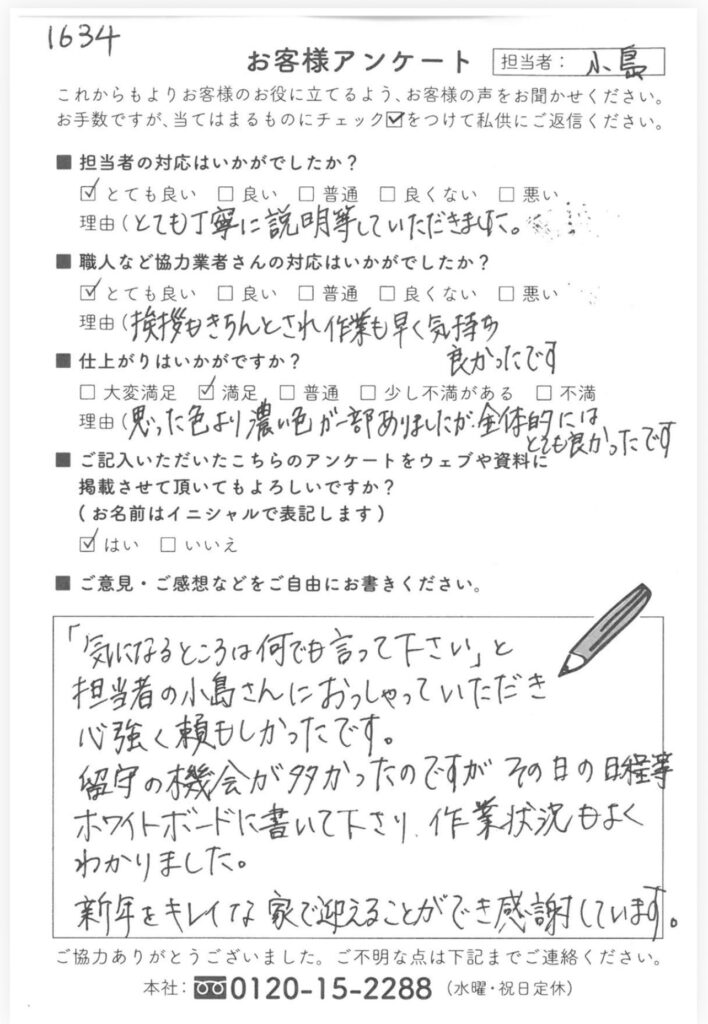 1634
お客様アンケート
担当者： 小島
これからもよりお客様のお役に立てるよう、お客様の声をお聞かせください。
お手数ですが、当てはまるものにチェック☑をつけて私供にご返信ください。
■ 担当者の対応はいかがでしたか？
☑とても良い □良い □普通 □良くない □悪い
理由（とても丁寧に説明等していただきました。
■ 職人など協力業者さんの対応はいかがでしたか？
☑とても良い □良い □普通 □良くない □悪い
理由（挨拶もきちんとされ作業も早く気持ち
良かったです
■ 仕上がりはいかがですか？
□大変満足 ☑満足 □普通 □少し不満がある □不満
理由（思った色より濃い色が一部ありましたが、全体的には
とても良かったです
■ ご記入いただいたこちらのアンケートをウェブや資料に
掲載させて頂いてもよろしいですか？
（お名前はイニシャルで表記します）
☑はい □いいえ
■ ご意見・ご感想などをご自由にお書きください。
「気になるところは何でも言って下さい」と
担当者の小島さんにおっしゃっていただき
心強く頼もしかったです。
留守の機会が多かったのですが その日の日程等
ホワイトボードに書いて下さり、作業状況もよく
わかりました。
新年をキレイな家で迎えることができ感謝しています。
ご協力ありがとうございました。ご不明な点は下記までご連絡ください。
本社：0120-15-2288（水曜・祝日定休）